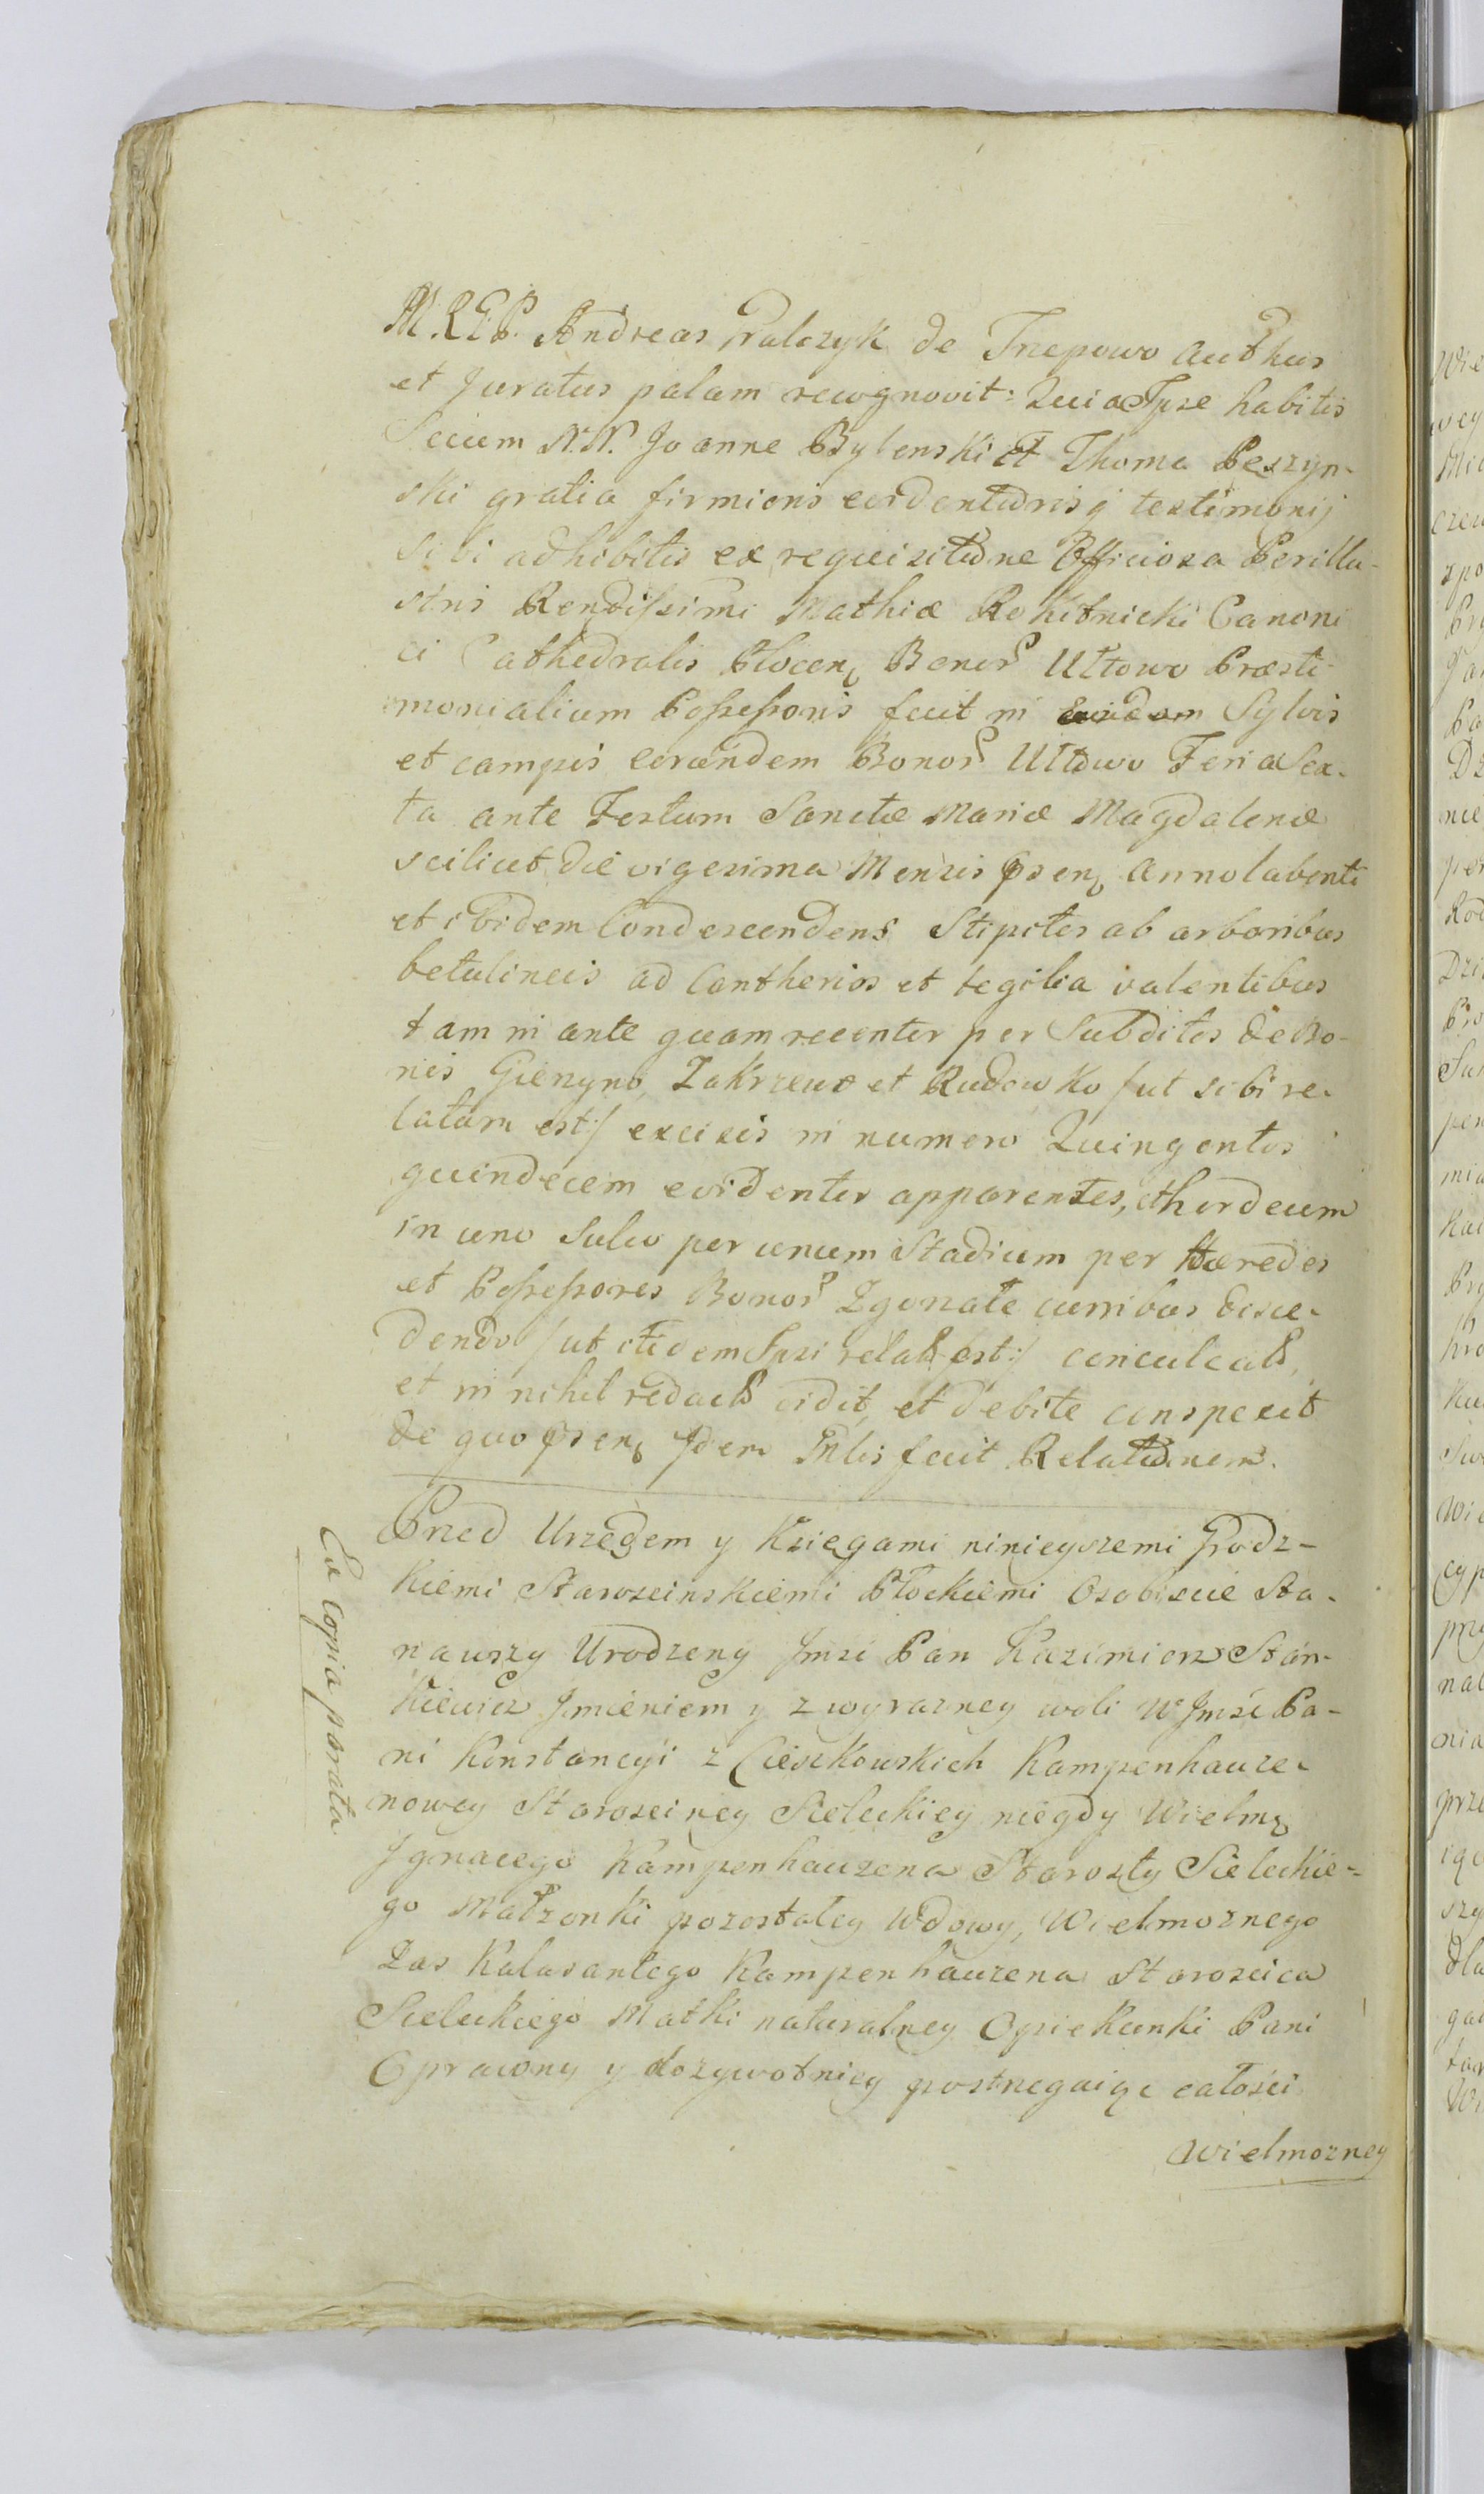 M.R.G.P. Andreas Pralczyk de Trzepowo Authus
et Juratus palam recognovit: Quia Ipse habitis
Secum N.N. Joanne Bylenski et Thoma Peszyn-
ski gratia firmioris evidentiorisq testimonij
sibi adhibitis ex requisitione Officiosa Perillu-
stris Rendissimi Mathiæ Rokitnicki Canoni
ci Cathedralis Plocen Bonor Ułtowo Præsti-
monialium Possessoris fuit in Sylvis
et campis eorundem Bonor Ułtowo Feria Sex-
ta ante Festum Sanctæ Mariæ Magdalenæ
scilicet die vigesima Mensis psen Anno labenti
et ibidem Condescendens Stipites ab arboribus
betulineis ad Cantherios et tegilia valentibus
tam in ante quam recenter per Subditos de Bo-
nis Gienzyno, Zakrzewo et Rudowko /ut sibi re-
latum est:/ excisis in numero Quingentos
quindecem evidenter apparentes, et hordeum
in uno Sulco per unum Stadium per Hæredes
et Possessores Bonor Zgorzałe curribus disce-
dendo /ut itidem Ipsi relat est:/ conculcat,
et in nihil redact vidit, et debite conspexit
de quo psen Idem Mlis fecit Relationem.
Przed Urzędem y Xsięgami ninieyszemi Grodz-
kiemi Starościnskiemi Płockiemi Osobiscie Sta-
nąwszy Urodzeny Jmsci Pan Kazimierz Stan-
kiewicz Jmieniem y z wyrazney woli W Jmsci Pa-
ni Konstancyi z Cieszkowskich Kampenhauze-
nowey Starosciney Sieleckiey niegdy Wielm
Jgnacego Kampenhauzena Starosty Sieleckie-
go Małzonki pozostałey Wdowy, Wielmoznego
Zas Kalasantego Kampenhauzena Staroscica
Sieleckiego Matki naturalney Opiekunki Pani
Oprawny y dozywotniey postrzegaiąc całości
Wielmozney
Ex Copia porrata